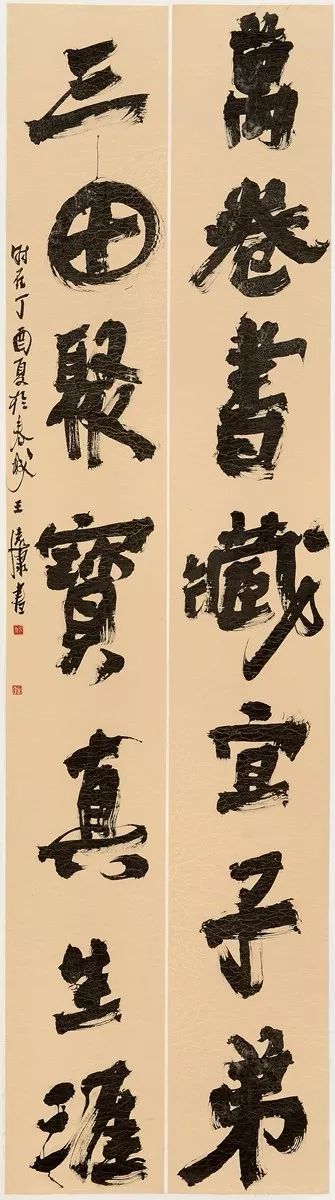 萬卷書藏宜子弟
三田聚寶真生涯
時在丁酉夏於春城王書